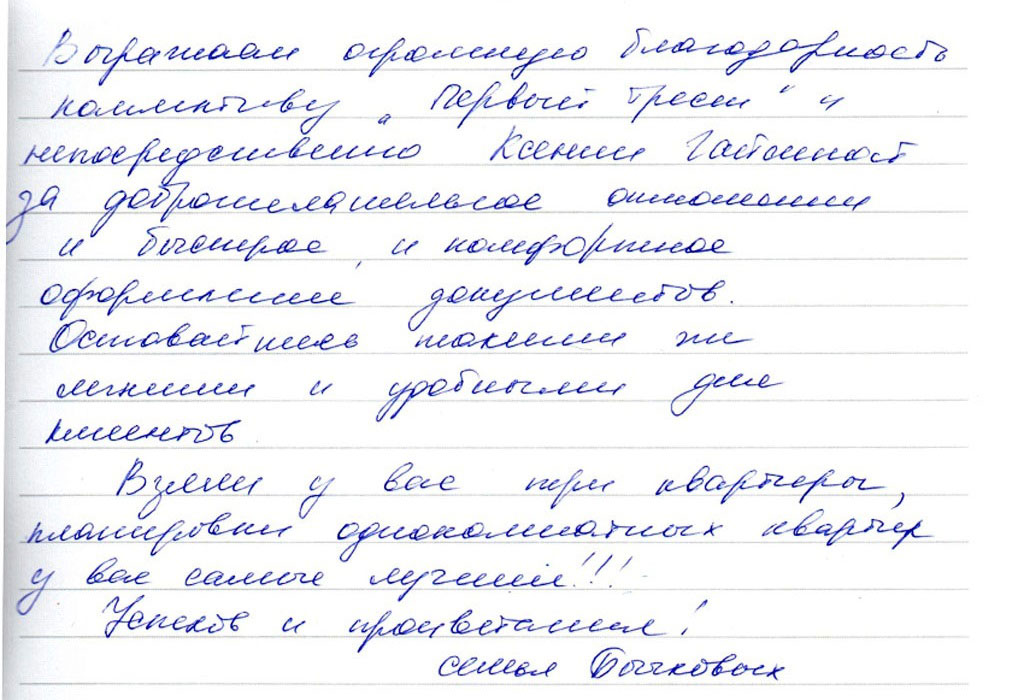 Выражаем огромную благодарность
коллективу „Первый трест" и
непосредственно Ксении
за доброжелательное отношение
и быстрое, и комфортное
оформление документов.
Оставайтесь такими же
легкими и удобными для
клиентов
Взяли у вас три квартиры,
планировки однокомнатных квартир
у вас самые лучшие!!!
Успехов и процветания!
семья Бычковых